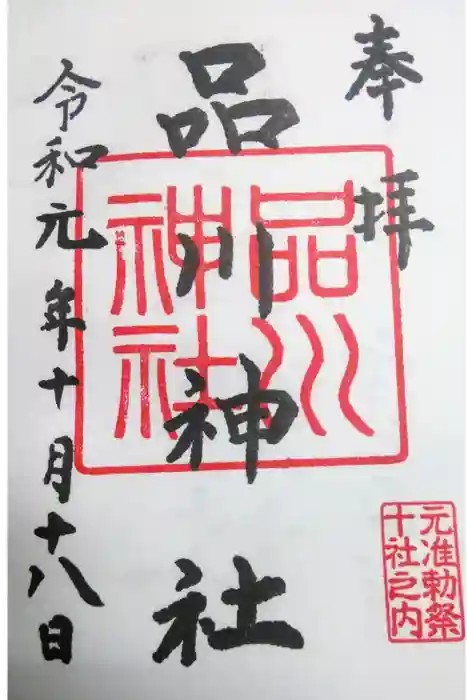 奉拝
品川神社
令和元年十月十八日
品川
神社
元准勅祭
十社之内